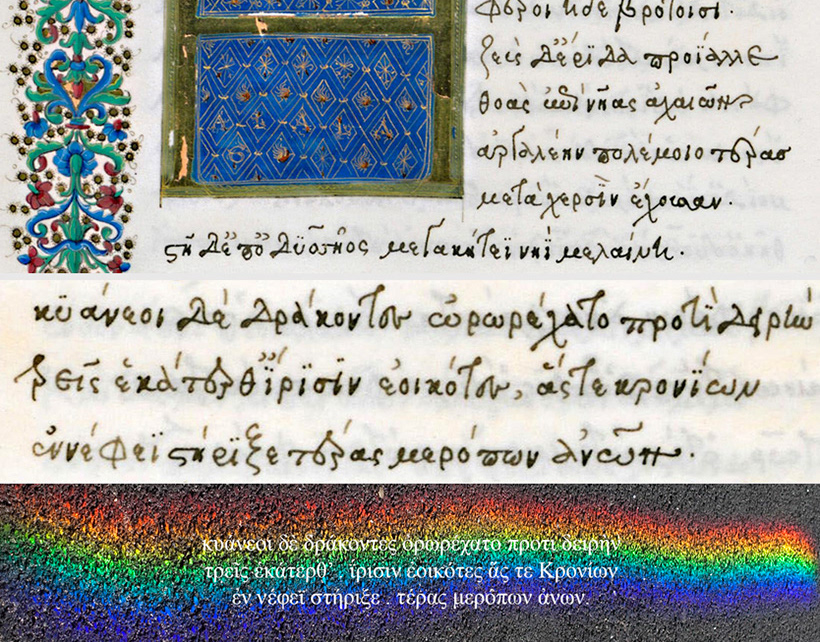 φέροι ἠδὲ βροτοῖσι.
ζεὺς δ᾽ ἔριδα προΐαλλε
θοὰς ἐπὶ νῆας ἀχαιῶν
ἀργαλέην πολέμοιο τέρας
μετὰ χερσὶν ἔχουσαν.
στῆ δ᾽ ἐπ᾽ ὀδυσσῆος μεγακήτεϊ νηῒ μελαίνῃ.
κυάνεοι δὲ δράκοντες ὀρωρέχατο προτὶ δειρὴν
τρεῖς ἑκάτερθ᾽ ἴρισιν ἐοικότες, ἅς τε κρονίων
ἐν νέφεϊ στήριξε τέρας μερόπων ἀνων.
κυάνεοι δὲ δράκοντες ὀρωρέχατο προτὶ δειρὴν
τρεῖς ἑκάτερθ᾽ . ἴρισιν ἐοικότες ἅς τε Κρονίων
ἐν νέφεϊ στήριξε . τέρας μερόπων ἀνων.